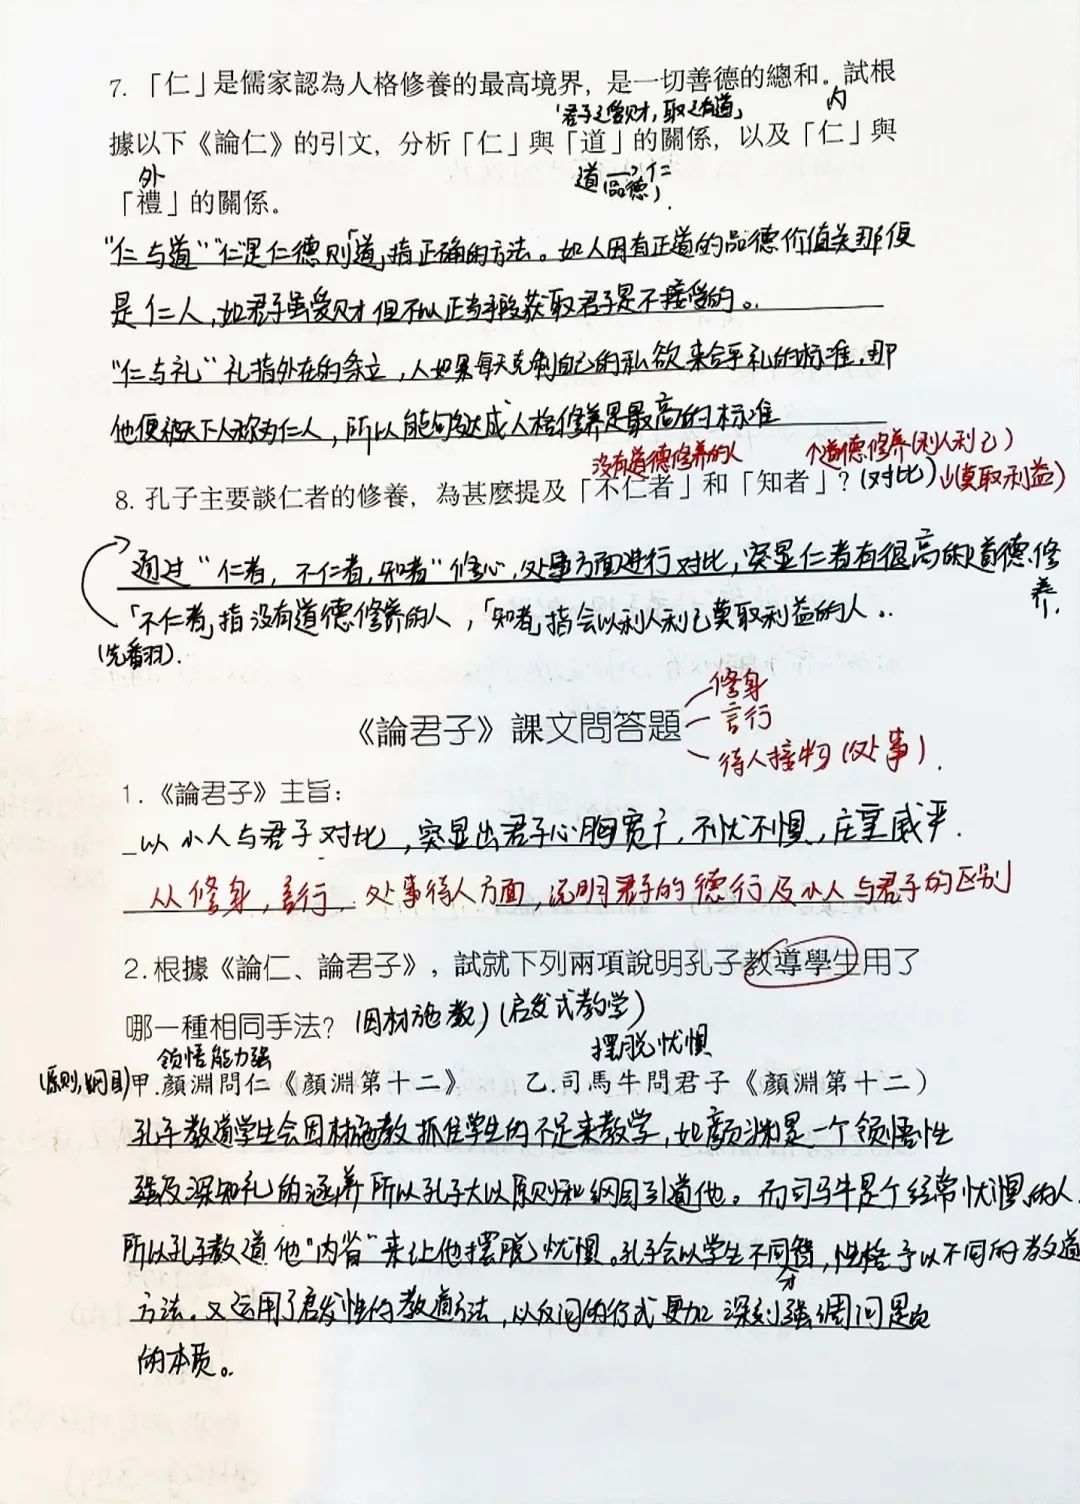 7. 「仁」是儒家認為人格修養的最高境界，是一切善德的總和。試根
「君子之受财，取之有道」
内
據以下《論仁》的引文，分析「仁」與「道」的關係，以及「仁」與
外
道→仁
(品德)
「禮」的關係。
"仁与道""仁"是仁德则「道」指正确的方法。如人因有正道的品德价值关那便
是仁人，如君子虽受财但不以正当手段获取君子是不接受的。
"仁与礼"礼指外在的条立，人如果每天克制自己的私欲来合乎礼的标准，那
他便被天下人称为仁人，所以能句达成人格修养是最高的标准
没有道德修养的人
个道德修养(利人利己)
8. 孔子主要談仁者的修養，為甚麼提及「不仁者」和「知者」？(对比)
(莫取利益)
通过"仁者，不仁者，知者"修心，处事方面进行对比，突显仁者有很高的道德修
养
「不仁者」指没有道德修养的人，「知者」指会以利人利己莫取利益的人。
《論君子》課文問答題
修身
言行
待人接物(处事).
1.《論君子》主旨：
以小人与君子对比，突显出君子心胸宽广，不忧不惧，庄重威严.
从修身，言行，处事待人方面，说明君子的德行及小人与君子的区别
2.根據《論仁、論君子》，試就下列兩項說明孔子教導學生用了
哪一種相同手法？(因材施教)(启发式教学)
领悟能力强
摆脱忧惧
(原则,纲目)甲.顏淵問仁《顏淵第十二》 乙.司馬牛問君子《顏淵第十二）
孔子教道学生会因材施教抓住学生的不足来教学，如颜渊是一个领悟性
强及深知礼的涵养所以孔子大以原则和纲目引道他。而司马牛是个经常忧惧的人.
所以孔子教道他"内省"来让他摆脱忧惧。孔子会以学生不同智，性格予以不同的教道
方法。又运用了启发性的教道方法，以反问的行式更加深刻强调问题
的本质。